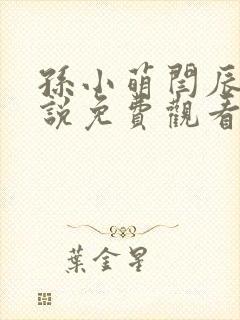 孫小萌閆辰
説免費觀看
葉金星